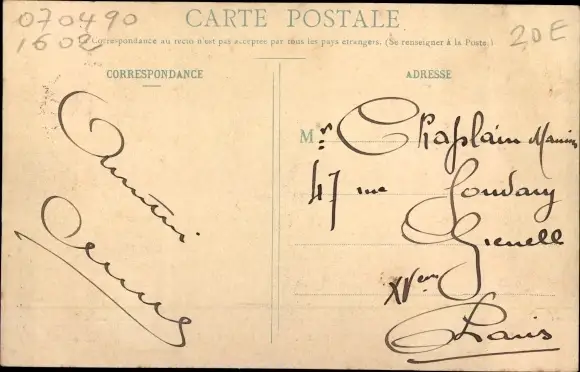 070490
1602
20E
CARTE POSTALE
La Correspondance au recto n'est pas acceptée par tous les pays étrangers. (Se renseigner à la Poste.)
CORRESPONDANCE
ADRESSE
Mr Chaplain
47 rue Fondary
Grenelle
XVeme
Paris